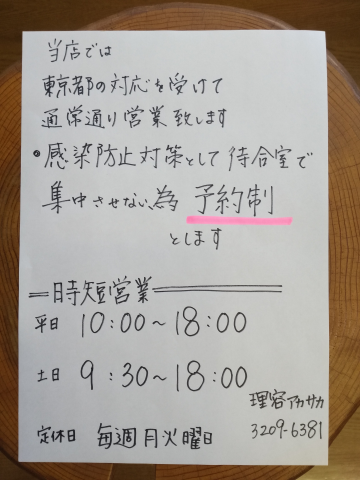 当店では
東京都の対応を受けて
通常通り営業致します
•感染防止対策として待合室で
集中させない為 予約制
とします
=時短営業=
平日 10:00〜18:00
土日 9:30〜18:00
定休日 毎週月火曜日
理容アカサカ
3209-6381